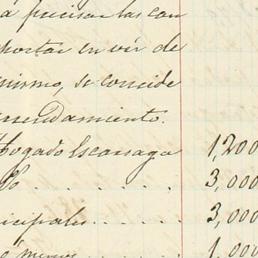 á precisar las con
portar en vir de
mismo, se concide
arrendamiento.
Hogado Escarraga 1,200
lo . . . . . . 3,000
icipales . . . . 3,000
1,000